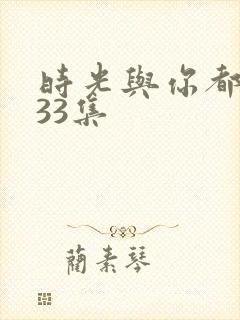 時光與你都
33集
藺素琴